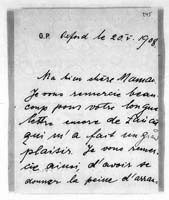 O.P. Oxford le 20.V. 1908
Ma bien chère Maman
Je vous remercie beau-
coup pour votre longue
lettre
qui m'a fait un gd
plaisir. Je vous remer-
cie aussi d'avoir se
donner la peine d'arran-